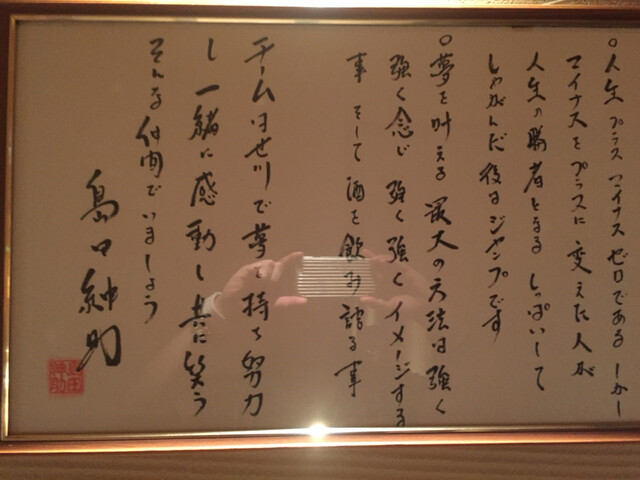 ○人生プラスマイナスゼロである しかし
マイナスをプラスに変えた人が
人生の勝者となる しっぱいして
しゃがんだ後はジャンプです
○夢を叶える最大の方法は強く
強く念じ 強く強くイメージする
事 そして酒を飲み語る事
チームはせ川で夢を持ち努力
し一緒に感動し共に笑う
そんな仲間でいましょう
島田紳助